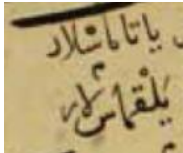 ياتاماسلار
يلقماس لار